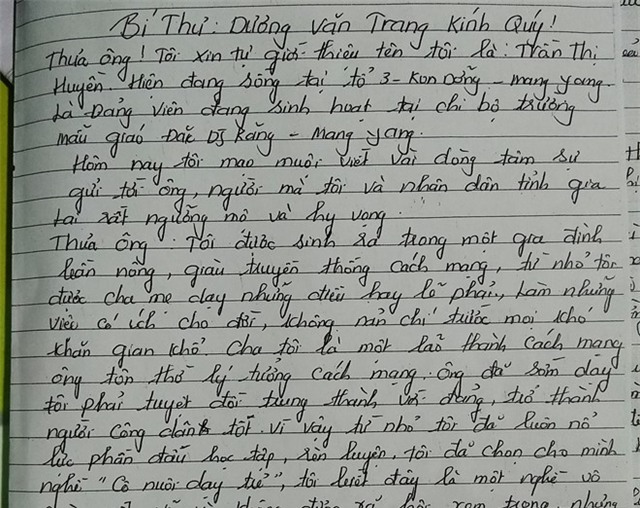 Bí Thư: Dương Văn Trang Kính Quý!
Thưa ông! Tôi xin tự giới thiệu tên tôi là: Trần Thị
Huyền. Hiện đang sống tại tổ 3 - Kon Dỡng - mang yang.
Là Đảng viên đang sinh hoạt tại chi bộ trường
mẫu giáo Đăk DJ Răng - Mang yang.
Hôm nay tôi mạo muội viết vài dòng tâm sự
gửi tới ông, người mà tôi và nhân dân tỉnh gia
lai rất ngưỡng mộ và hy vọng.
Thưa ông: Tôi được sinh ra trong một gia đình
bần nông, giàu truyền thống cách mạng, từ nhỏ tôi
được cha mẹ dạy những điều hay lẽ phải, làm những
việc có ích cho đời, không nản chí trước mọi khó
khăn gian khổ. Cha tôi là một lão thành cách mạng
ông tôn thờ lý tưởng cách mạng. ông đã sớm dạy
tôi phải tuyệt đối trung thành với đảng, trở thành
người công dân tốt. vì vậy từ nhỏ tôi đã luôn nỗ
lực phấn đấu học tập, rèn luyện, tôi đã chọn cho mình
nghề "Cô nuôi dạy trẻ", tôi biết đây là một nghề vô